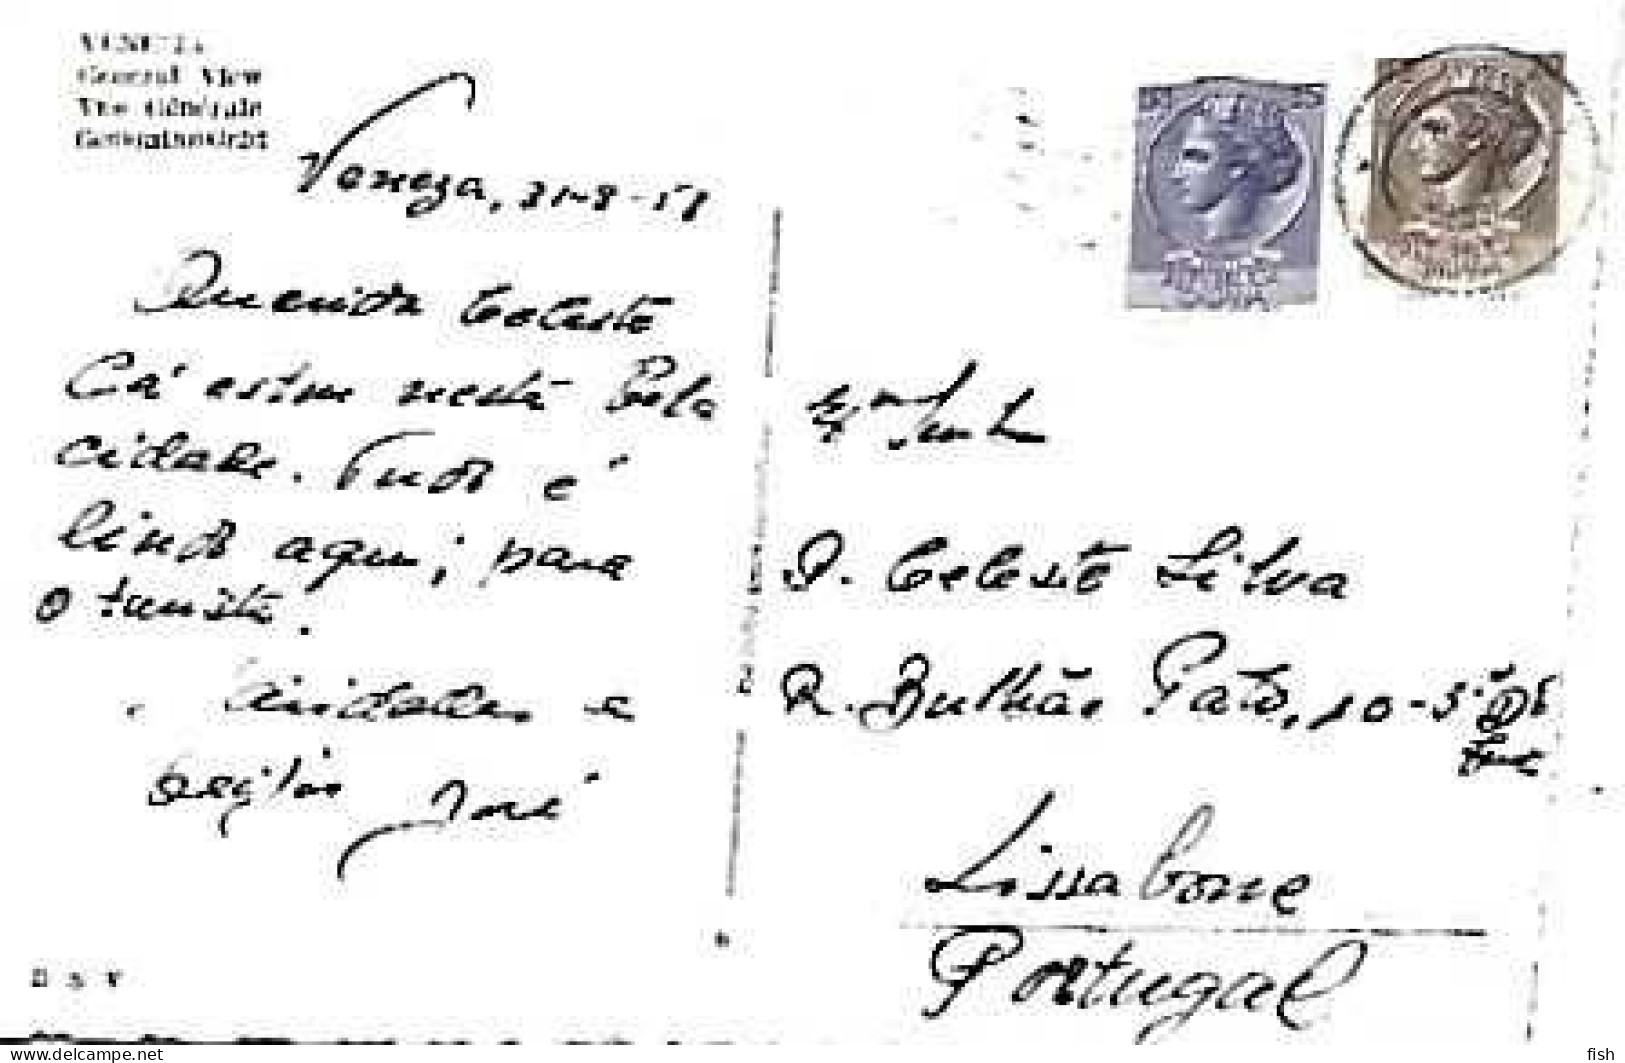 VENEZIA
General View
Vue Générale
Generalansicht
Veneza, 31-8-58
Querida Celeste
Cá estou nesta bela
cidade. Tudo é
lindo aqui, para
o turista.
Saudades e
beijos José
Exma Senhora
D. Celeste Silva
R. Bulhão Pato, 10-3º
Lissabone
Portugal
www.delcampe.net
fish